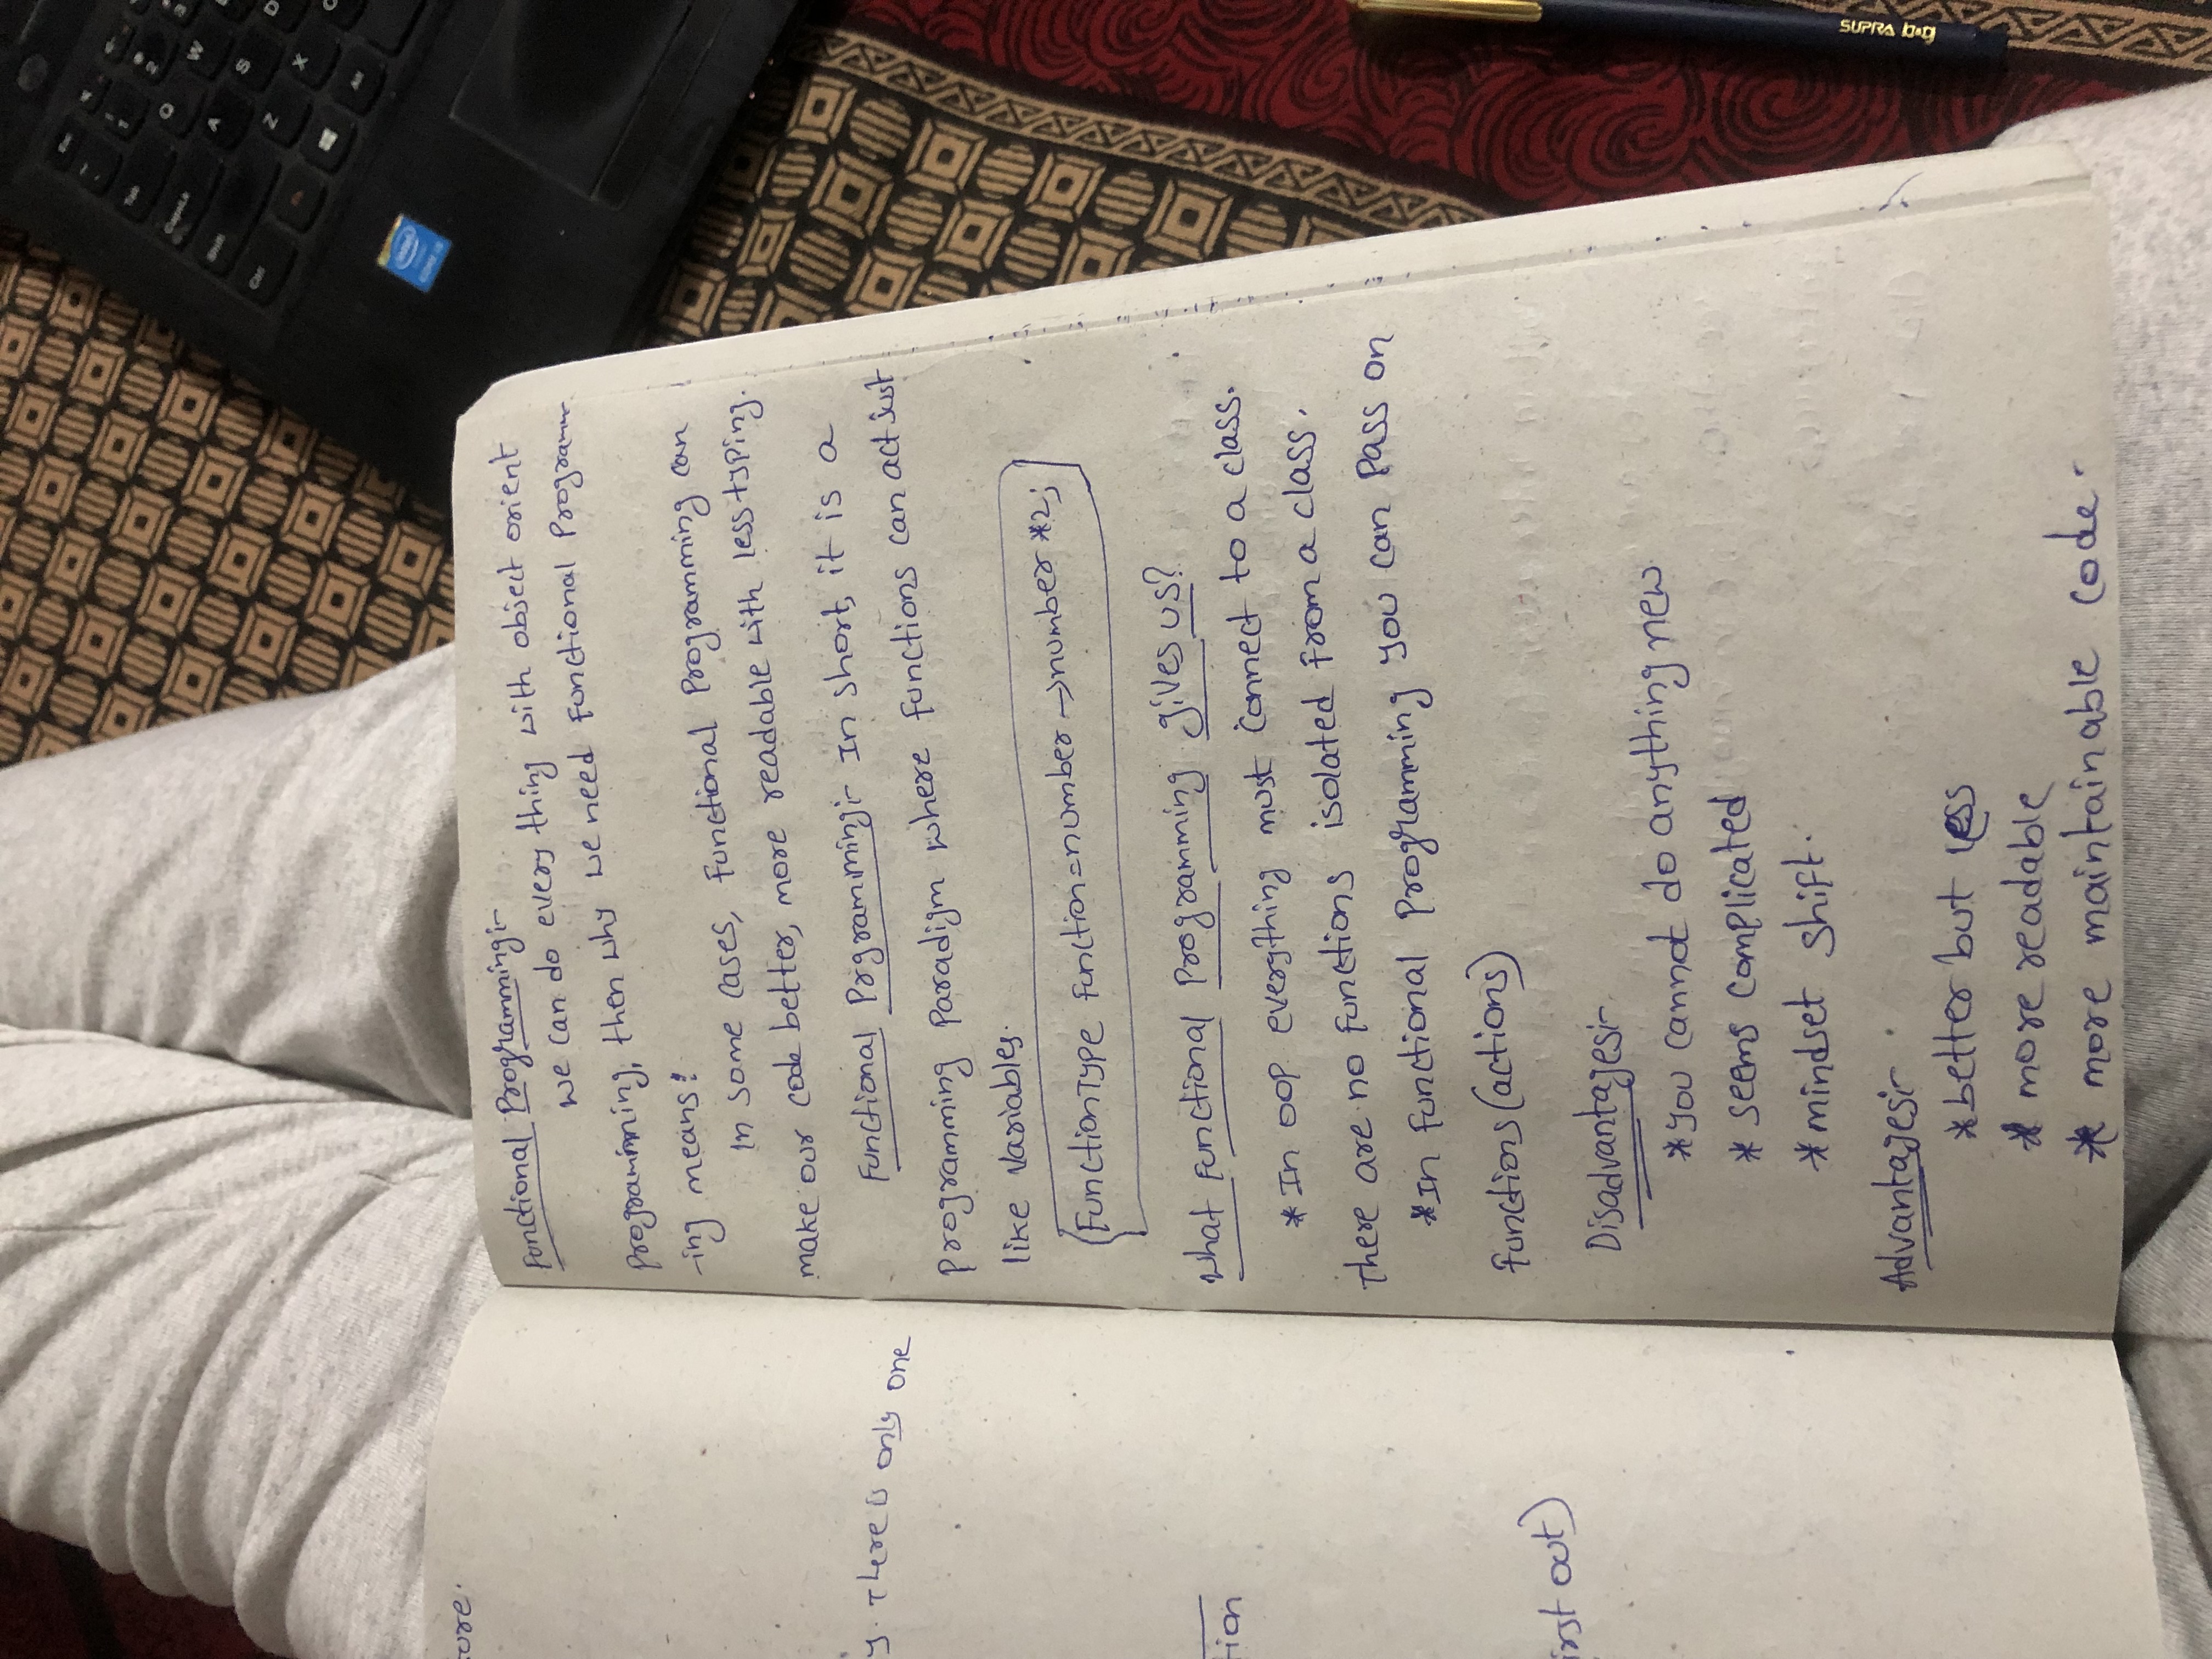 ture.
y. There is only one
tion
irst out)
Functional Programming:-
we can do every thing with object orient
programming, then why we need Functional Programm
-ing means?
In some cases, functional programming can
make our code better, more readable with less typing.
Functional Prgramming:- In short, it is a
programming paradigm where functions can act just
like variables.
FunctionType function=number->number*2;
What Functional Programming gives us?
*In OOP everything must connect to a class.
There are no functions isolated from a class.
*In functional programming you can pass on
functions(actions)
Disadvantages:-
*you cannot do anything new
* seems complicated
*mindset shift.
Advantages:-
*better but less
* more readable
* more maintainable code.
Esc
Tab
CapsLk
Shift
Ctrl
1
2
3
Q
W
A
S
D
Z
X
Alt
intel
SUPRA big